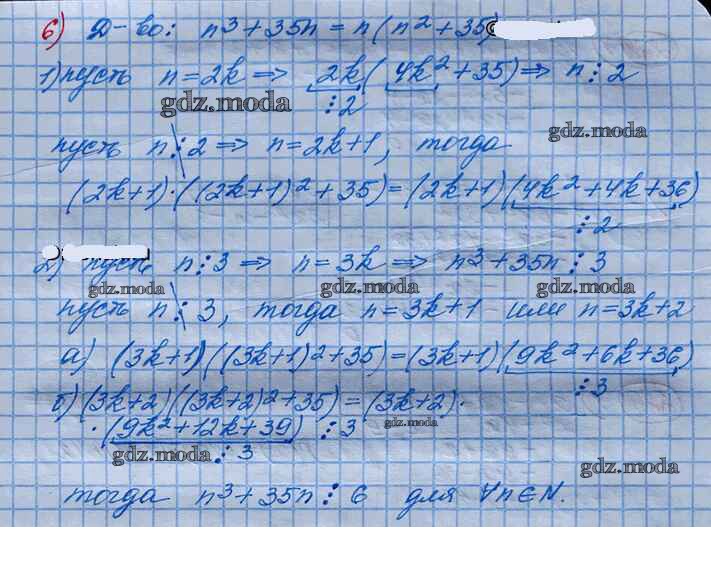 6) Д-во: n³ + 35n = n(n² + 35)
1) пусть n = 2k ⇒ 2k(4k² + 35) ⇒ n ⋮ 2
gdz.moda ⋮ 2
gdz.moda
пусть n ⋮̸ 2 ⇒ n = 2k+1, тогда
(2k+1)·((2k+1)² + 35) = (2k+1)(4k² + 4k + 36)
⋮ 2
2) пусть n ⋮ 3 ⇒ n = 3k ⇒ n³ + 35n ⋮ 3
gdz.moda gdz.moda gdz.moda
пусть n ⋮̸ 3, тогда n = 3k+1 или n = 3k+2
а) (3k+1)((3k+1)² + 35) = (3k+1)(9k² + 6k + 36)
⋮ 3
б) (3k+2)((3k+2)² + 35) = (3k+2)·
·(9k² + 12k + 39) ⋮ 3 gdz.moda
gdz.moda ⋮ 3
gdz.moda
тогда n³ + 35n ⋮ 6 для ∀n∈N.